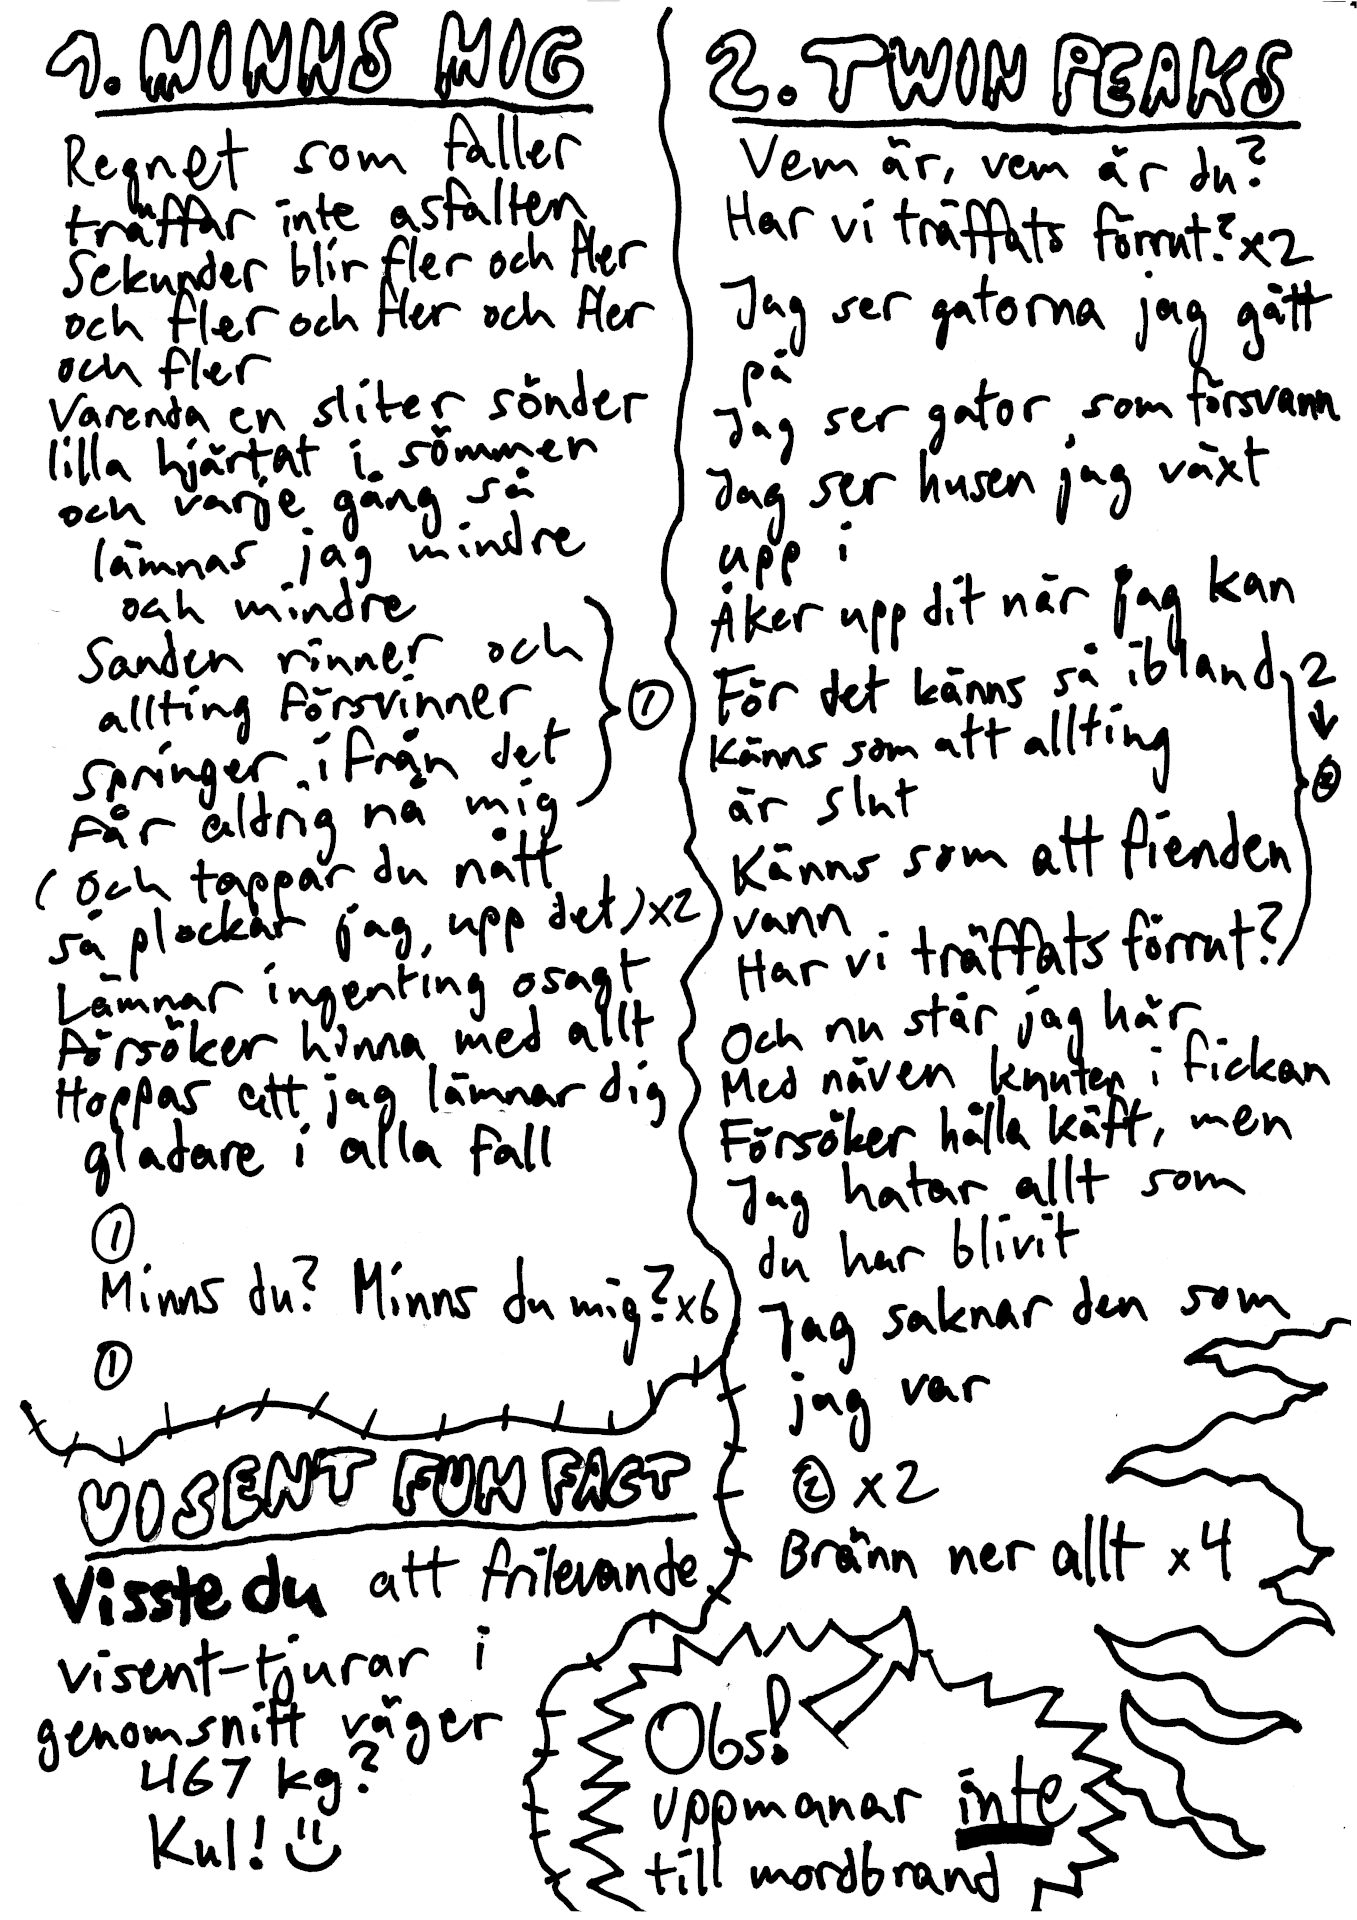 1. MINNS MIG
Regnet som faller
träffar inte asfalten
Sekunder blir fler och fler
och fler och fler och fler
och fler
Varenda en sliter sönder
lilla hjärtat i sömmen
och varje gång så
lämnas jag mindre
och mindre
Sanden rinner och
allting försvinner
springer ifrån det
Får aldrig nå mig
1
(Och tappar du nått
så plockar jag upp det) x2
Lämnar ingenting osagt
försöker hinna med allt
Hoppas att jag lämnar dig
gladare i alla fall
1
Minns du? Minns du mig? x6
1
VISENT FUN FACT
Visste du att frilevande
visent-tjurar i
genomsnitt väger
467 kg?
Kul!
2. TWIN PEAKS
Vem är, vem är du?
Har vi träffats förrut? x2
Jag ser gatorna jag gått
på
Jag ser gator som försvann
Jag ser husen jag växt
upp i
Åker upp dit när jag kan
För det känns så ibland
Känns som att allting
är slut
Känns som att fienden
vann
Har vi träffats förrut?
2
↓
2
Och nu står jag här
Med näven knuten i fickan
Försöker hålla käft, men
Jag hatar allt som
du har blivit
Jag saknar den som
jag var
2 x2
Bränn ner allt x4
Obs!
uppmanar inte
till mordbrand